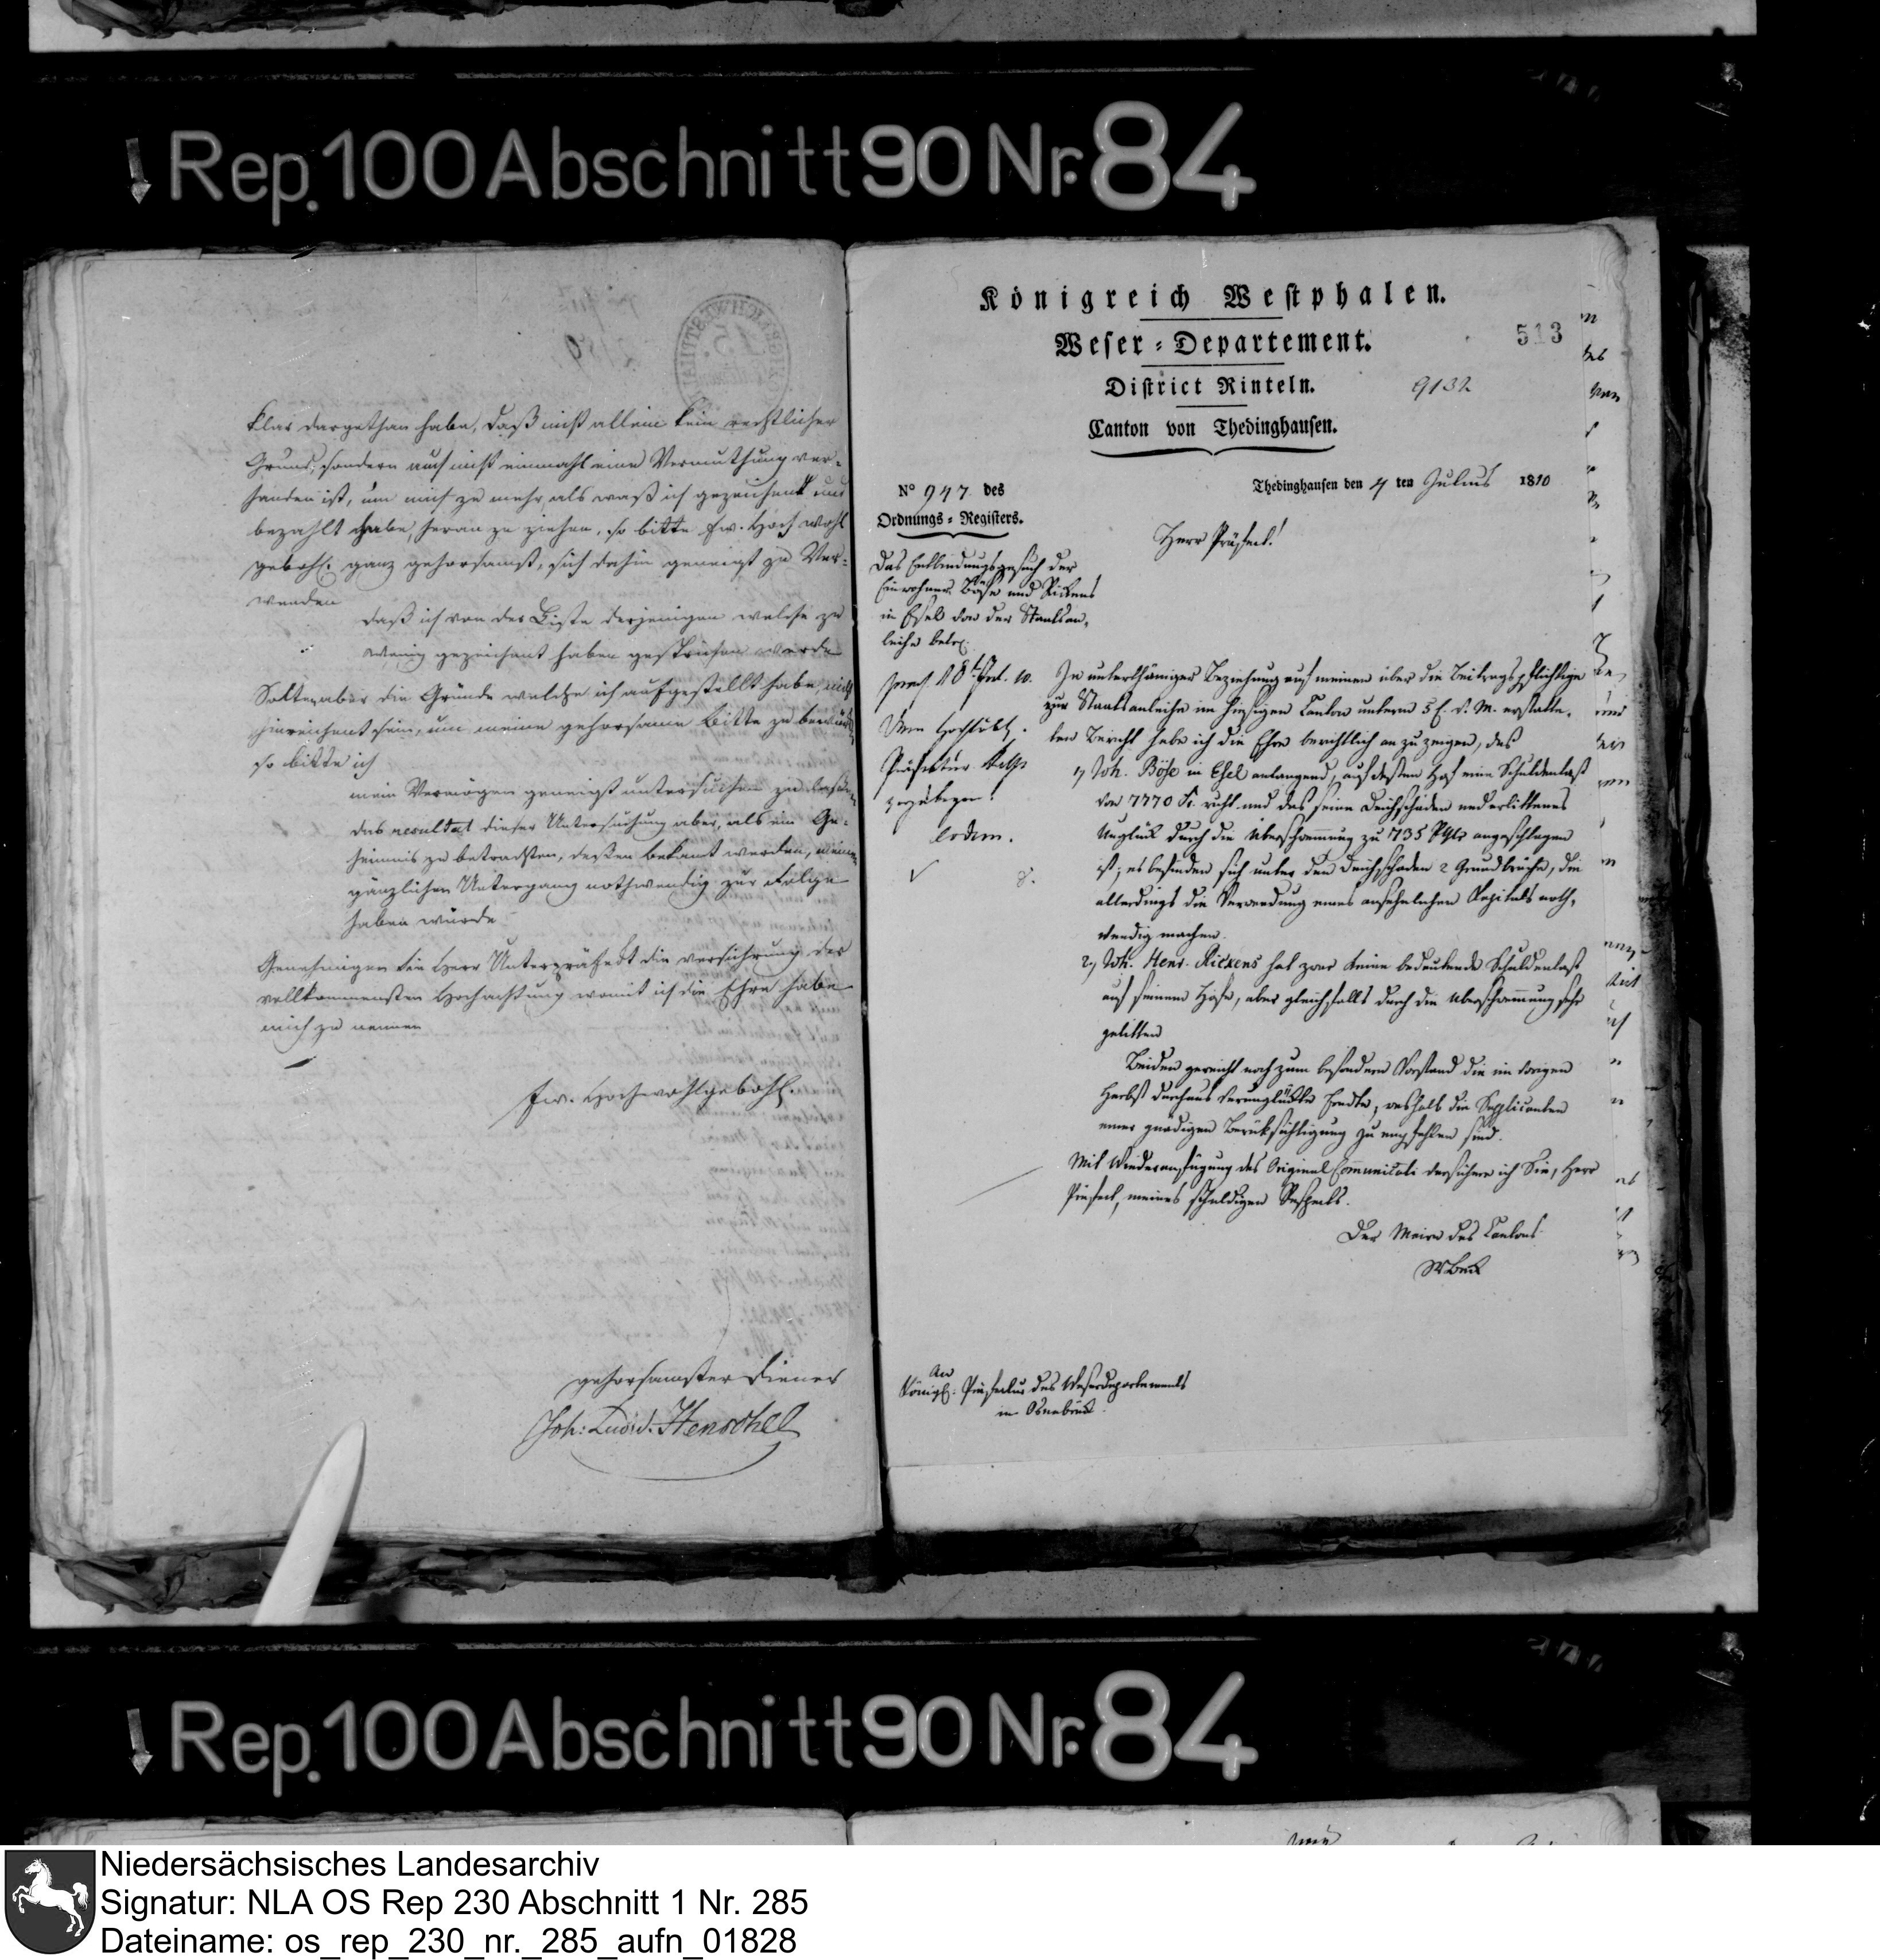 Rep. 100 Abschnitt 90 Nr. 84
klar dargethan habe, daß nicht allein kein rechtlicher
Grund, sondern auch nicht einmahl eine Vermuthung vor-
handen ist, um mich zu mehr, als waß ich gezeichent und
bezahlt habe, heran zu ziehen, so bitte Ew. Hoch wohl
gebohr. ganz gehorsamst, sich dahin geneigt zu Ver-
wenden
daß ich von der Liste derjenigen welche zu
wenig gezeichent haben gestrichen werde
Solten aber die Gründe welche ich aufgestellt habe, nicht
hinreichent sein, um meine gehorsame Bitte zu
so bitte ich
mein Vermögen geneigt untersuchen zu
das resultat dieser Untersuchung aber, als ein Ge-
heimnis zu betrachten, deßen bekant werden, meinen
gänzlichen Untergang nothwendig zur Folge
haben würde
Genehmigen Sie Herr Unterpräfect die versicherung der
vollkommensten Hochachtung womit ich die Ehre habe
mich zu nennen
Ew. Hochwohlgebohr.
gehorsamster Diener
Joh: Ludw. Henschel
Königreich Westphalen.
Weser-Departement.
513
District Rinteln.
9132
Canton von Thedinghausen.
Thedinghausen den 4 ten Julius 1810
N° 947 des
Ordnungs-Registers.
Herr Präfect!
Das Entbindungsgesuch der
Einwohner Böse und Rickens
in Esel von der Staatsan-
leihe betr.
In unterthäniger Beziehung auf meinen über die Beitragspflichtige
zur Staatsanleihe im hiesigen Canton unterm 5 t. v. M. erstatte-
ten Bericht habe ich die Ehre berichtlich anzuzeigen, das
1, Joh. Böse in Esel anlangend, auf dessen Hof eine Schuldenlast
von 7770 Fr. ruht und das seine Deichschäden und erlittenes
Unglück durch die Überschwemmung zu 735 Rthlr angeschlagen
ist; es befinden sich unter den Deichschaden 2 Grundbrüche, die
allerdings die Verwendung eines ansehnlichen Kapitals noth-
wendig machen.
2, Joh. Henr. Rickens hat zwar keine bedeutende Schuldenlast
auf seinem Hofe, aber gleichfalls durch die Überschwemmung sehr
gelitten
Beiden gereicht noch zum besondern Vorstand die im vorigen
Herbst durchaus verunglückte Erndte, weshalb die Supplicanten
einer gnädigen Berüksichtigung zu empfehlen sind.
Mit Wiederanfügung des Original Communicati versichere ich Sie, Herr
Präfect, meines schuldigen Respects.
Der Maire des Cantons
An
Königl. Präfectur des Weserdepartements
in Osnabrück.
Rep. 100 Abschnitt 90 Nr. 84
Niedersächsisches Landesarchiv
Signatur: NLA OS Rep 230 Abschnitt 1 Nr. 285
Dateiname: os_rep_230_nr._285_aufn_01828